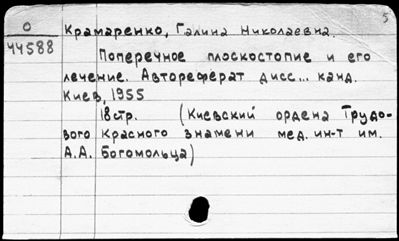 5
О
44588
Крамаренко, Галина Николаевна.
Поперечное плоскостопие и его
лечение. Автореферат дисс... канд.
Киев, 1955
18стр. (Киевский ордена Трудо-
вого Красного знамени мед. ин-т им.
А.А. Богомольца)